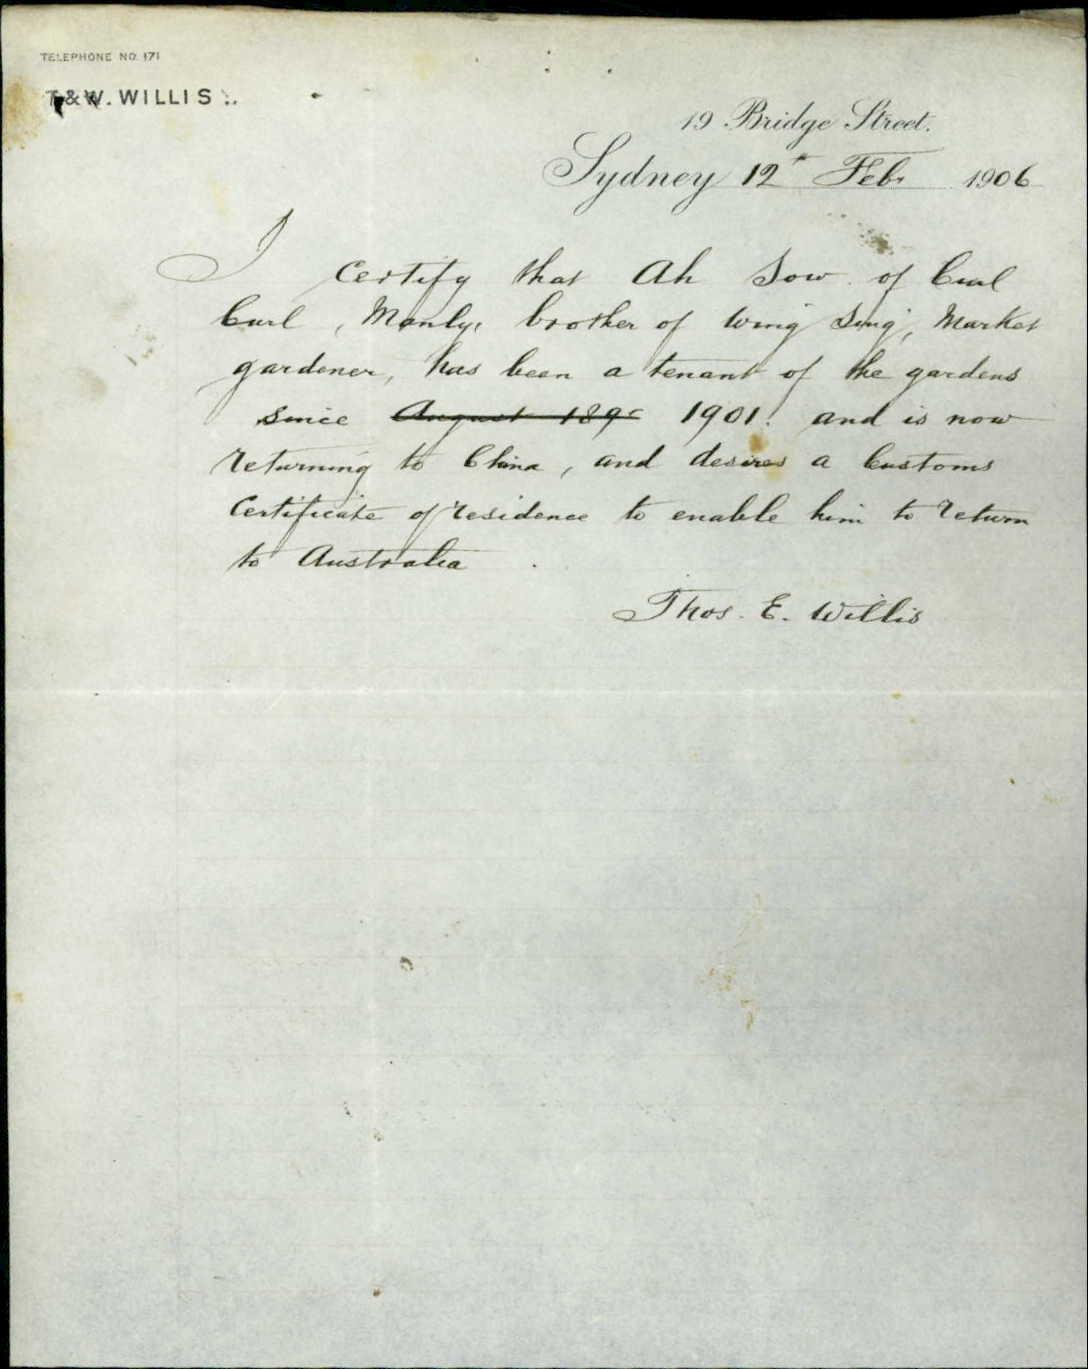 TELEPHONE NO. 171
T. & W. WILLIS
19 Bridge Street.
Sydney 12th Feby 1906
I certify that Ah Sow of Curl
Curl, Manly, brother of Wing Sing, Market
gardener, has been a tenant of the gardens
since August 189 1901. and is now
returning to China, and desires a Customs
Certificate of residence to enable him to return
to Australia.
Thos. E. Willis